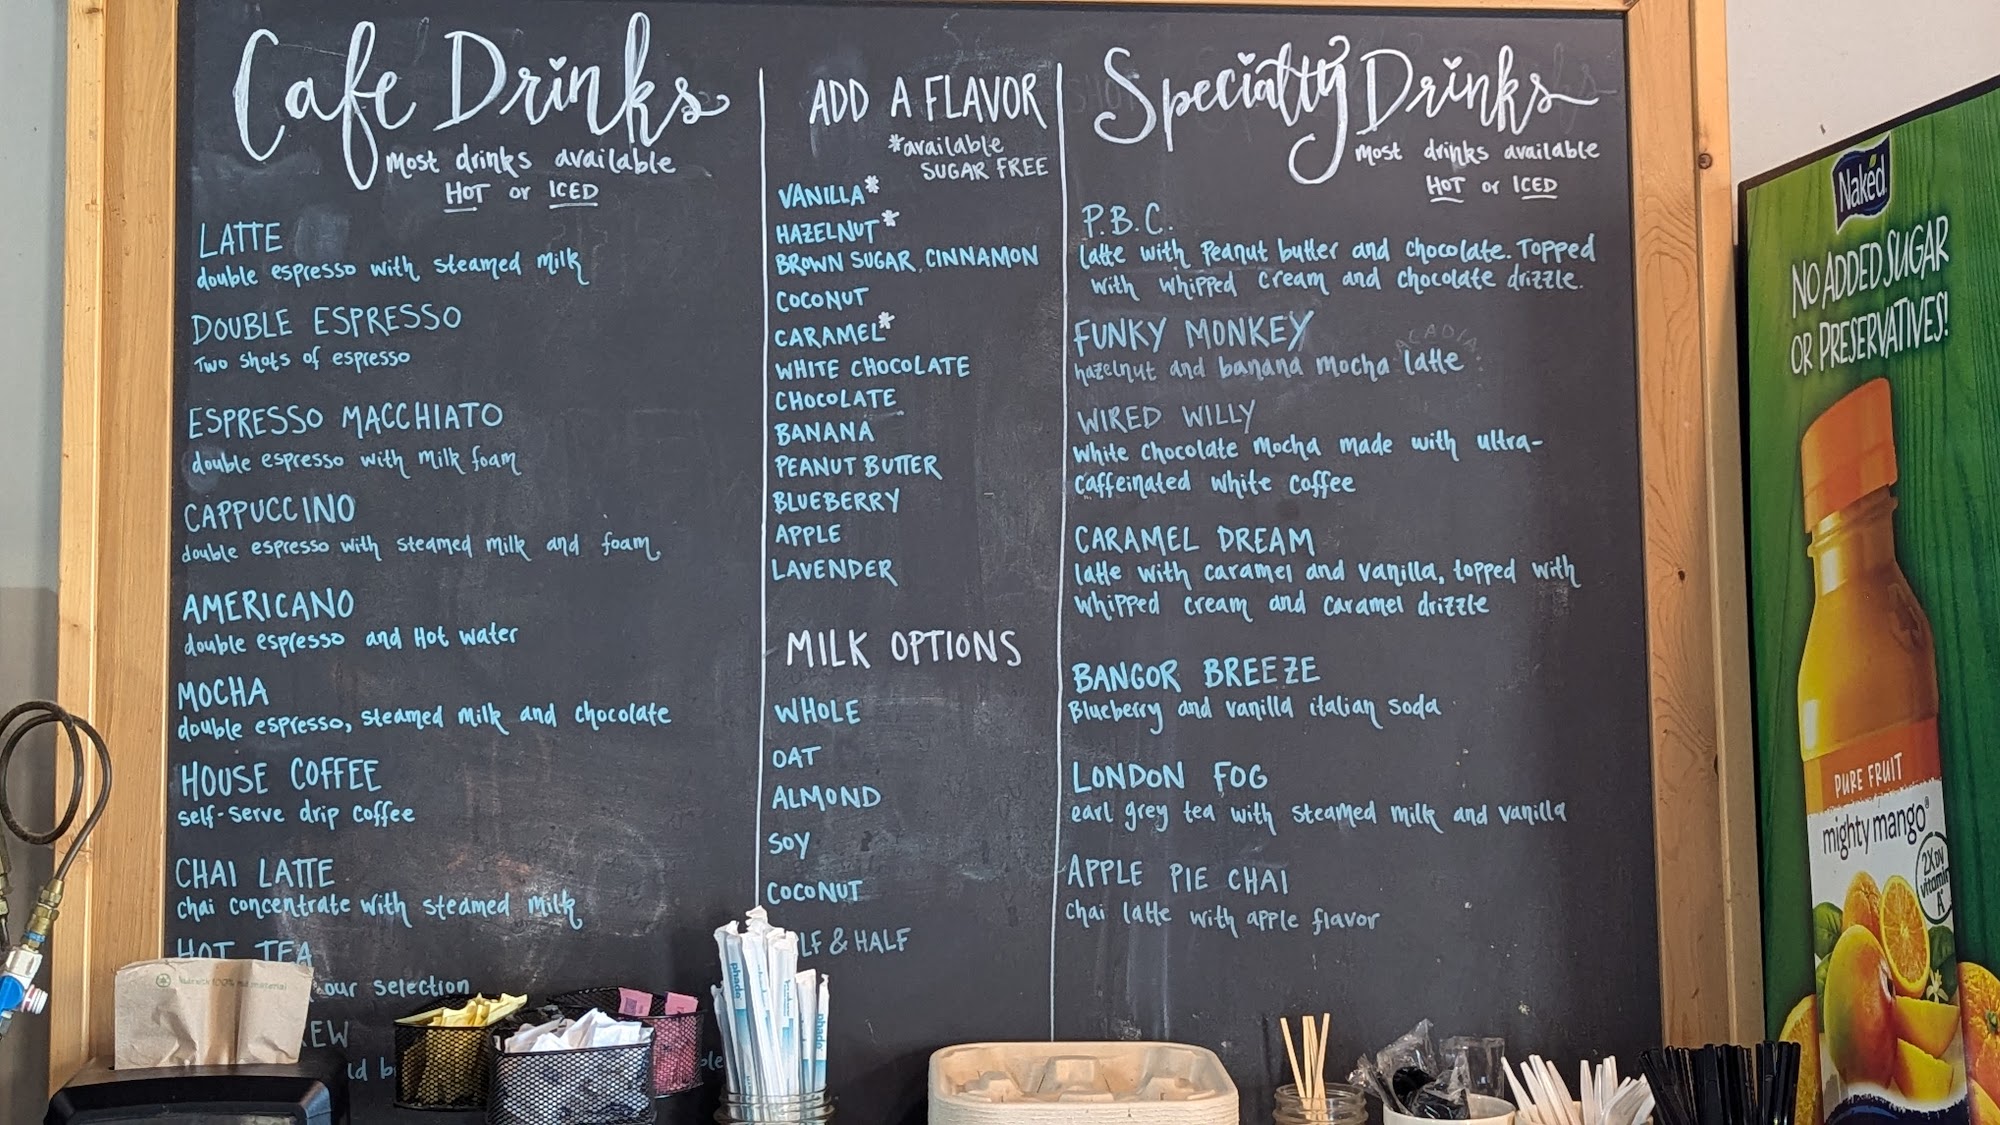 Cafe Drinks
Most drinks available
HOT or ICED
LATTE
double espresso with steamed milk
DOUBLE ESPRESSO
Two shots of espresso
ESPRESSO MACCHIATO
double espresso with milk foam
CAPPUCCINO
double espresso with steamed milk and foam
AMERICANO
double espresso and Hot water
MOCHA
double espresso, steamed milk and chocolate
HOUSE COFFEE
self-serve drip coffee
CHAI LATTE
chai concentrate with steamed milk
HOT TEA
our selection
ADD A FLAVOR
*available
SUGAR FREE
VANILLA*
HAZELNUT*
BROWN SUGAR CINNAMON
COCONUT
CARAMEL*
WHITE CHOCOLATE
CHOCOLATE
BANANA
PEANUT BUTTER
BLUEBERRY
APPLE
LAVENDER
MILK OPTIONS
WHOLE
OAT
ALMOND
SOY
COCONUT
& HALF
Specialty Drinks
Most drinks available
HOT or ICED
P.B.C.
latte with Peanut butter and chocolate. Topped
with whipped cream and chocolate drizzle.
FUNKY MONKEY
hazelnut and banana mocha latte
ACADIA
WIRED WILLY
white chocolate mocha made with ultra-
caffeinated white coffee
CARAMEL DREAM
latte with caramel and vanilla, topped with
whipped cream and caramel drizzle
BANGOR BREEZE
Blueberry and vanilla italian soda
LONDON FOG
earl grey tea with steamed milk and vanilla
APPLE PIE CHAI
chai latte with apple flavor
Naked
NO ADDED SUGAR
OR PRESERVATIVES!
PURE FRUIT
mighty mango
2X DV
vitamin
A
phade